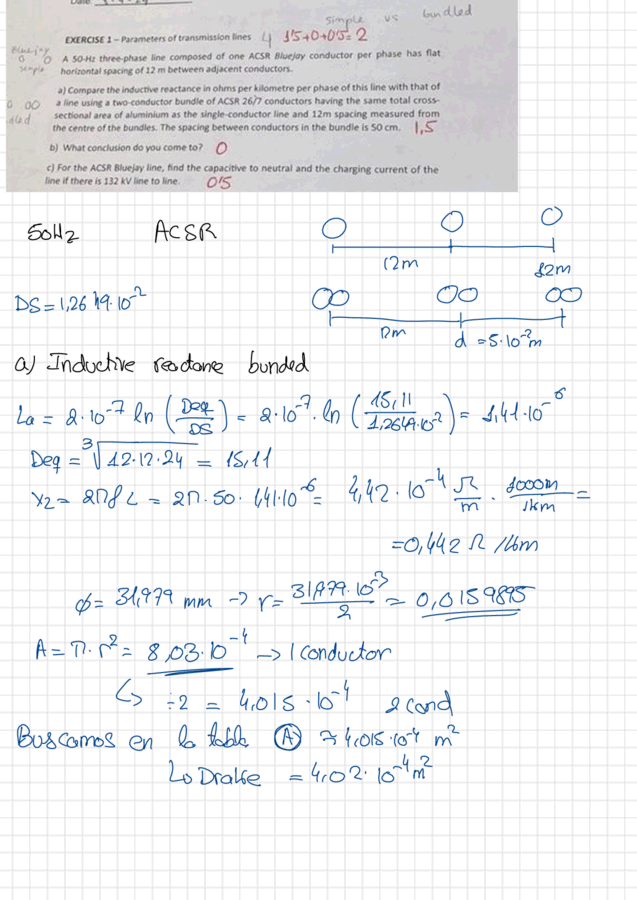 simple vs bundled
EXERCISE 1 – Parameters of transmission lines 4 1'5+0+0'5=2
Bluejay
simple
A 50-Hz three-phase line composed of one ACSR Bluejay conductor per phase has flat
horizontal spacing of 12 m between adjacent conductors.
a) Compare the inductive reactance in ohms per kilometre per phase of this line with that of
a line using a two-conductor bundle of ACSR 26/7 conductors having the same total cross-
sectional area of aluminium as the single-conductor line and 12m spacing measured from
the centre of the bundles. The spacing between conductors in the bundle is 50 cm. 1,5
b) What conclusion do you come to? 0
c) For the ACSR Bluejay line, find the capacitive to neutral and the charging current of the
line if there is 132 kV line to line. 0'5
50Hz ACSR
12m 12m
DS = 1,2649·10⁻²
12m d = 5·10⁻²m
a) Inductive reactane bunded
La = 2·10⁻⁷ ln (Deq/DS) = 2·10⁻⁷·ln (15,11/1,2649·10⁻²) = 1,41·10⁻⁶
Deq = ³√12·12·24 = 15,11
X2 = 2πf L = 2π·50·1,41·10⁻⁶ = 4,42·10⁻⁴ Ω/m · 1000m/1km =
= 0,442 Ω/km
ϕ = 31,979 mm → r = 31,979·10⁻³/2 = 0,0159895
A = π·r² = 8,03·10⁻⁴ → 1 conductor
↳ ÷2 = 4,015·10⁻⁴ 2 cond
Buscamos en la tabla (A) ≈ 4,015·10⁻⁴ m²
↳ Drake = 4,02·10⁻⁴ m²